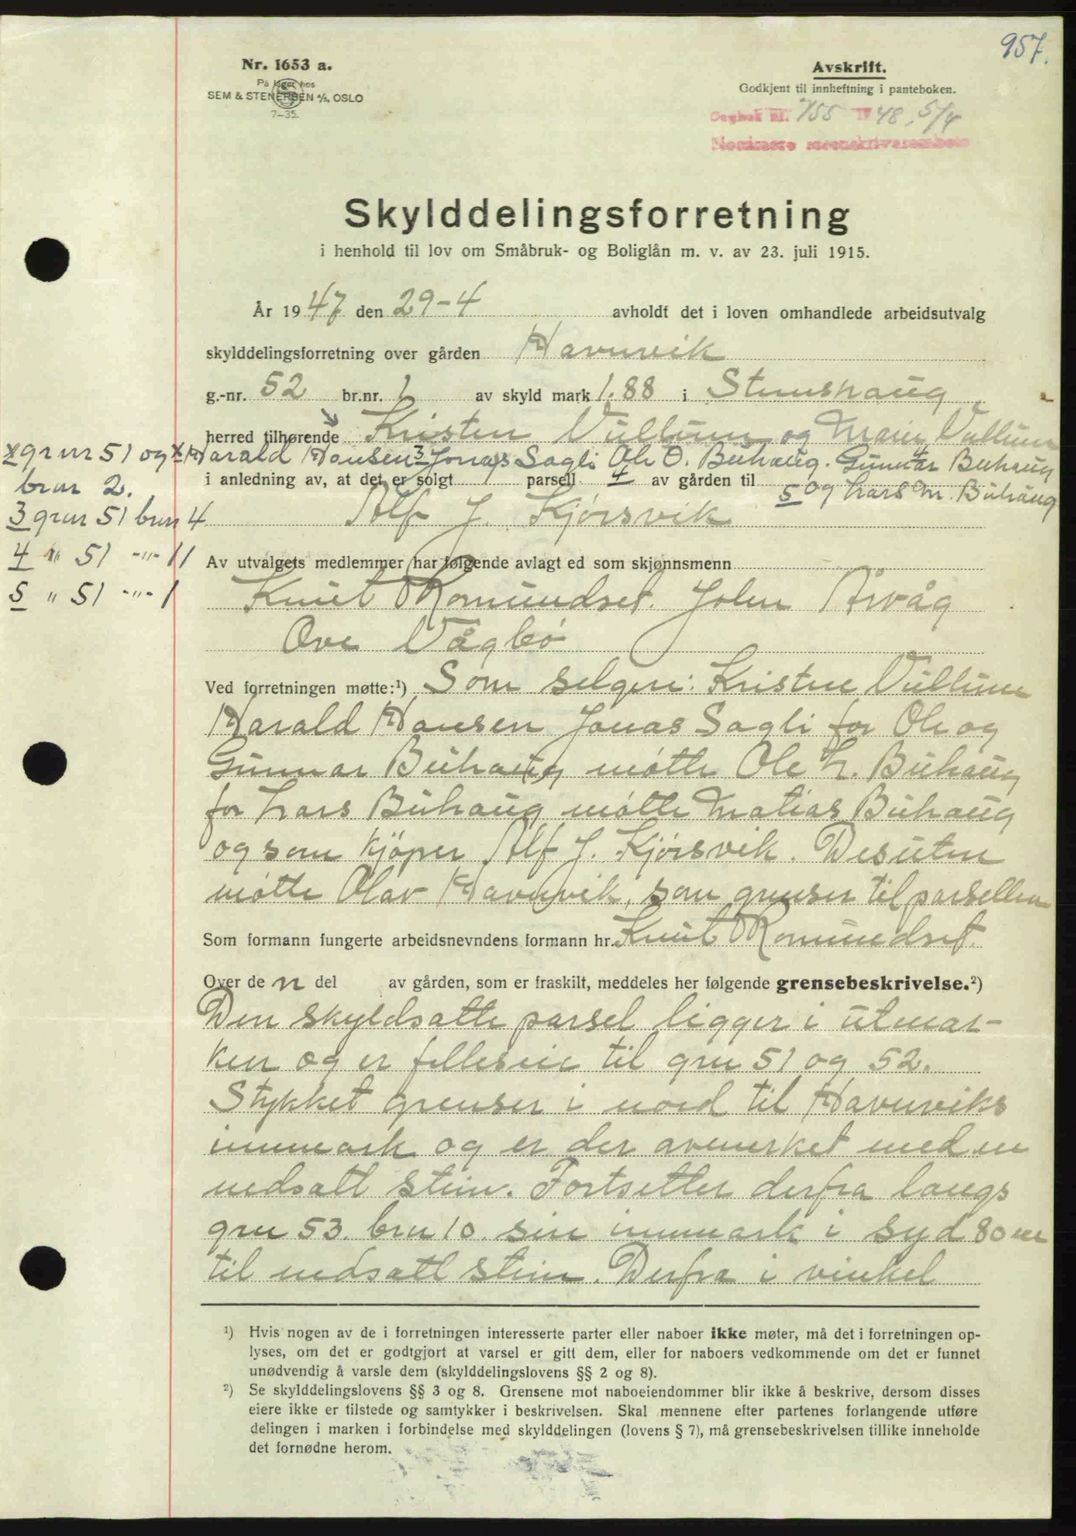 957.
Nr. 1653 a.
På lager hos
SEM & STENERSEN A/S, OSLO
7-35.
Avskrift.
Godkjent til innheftning i panteboken.
Dagbok nr. 755 1948, 5/4
Nordmøre sorenskriverembete
Skylddelingsforretning
i henhold til lov om Småbruk- og Boliglån m. v. av 23. juli 1915.
År 1947 den 29-4 avholdt det i loven omhandlede arbeidsutvalg
skylddelingsforretning over gården Havnvik
g.-nr. 52 br.nr. 1 av skyld mark 1.88 i Stemshaug
herred tilhørende Kristen Vullum og Marie Vullum
x Harald Hansen 3 Jonas Sagli Ole O. Buhaug. Gunnar Buhaug
i anledning av, at det er solgt 1 parsell 4 av gården til 5 og Lars M. Buhaug
Alf J. Kjørsvik
x grnr 51 og
brnr 2.
3 grnr 51 brnr 4
4 " 51 -"- 11
5 " 51 -"- 1
Av utvalgets medlemmer har følgende avlagt ed som skjønnsmenn
Knut Romundset. John Årvåg
Ove Vågbø
Ved forretningen møtte:¹) Som selgere: Kristen Vullum
Harald Hansen Jonas Sagli for Ole og
Gunnar Buhaug møtte Ole L. Buhaug
for Lars Buhaug møtte Matias Buhaug
og som kjøper Alf J. Kjørsvik. Desuten
møtte Olav Havnvik, som grenser til parsellen
Som formann fungerte arbeidsnevndens formann hr. Knut Romundset.
Over den del av gården, som er fraskilt, meddeles her følgende grensebeskrivelse.²)
Den skyldsatte parsel ligger i utmar-
ken og er felleseie til gnr 51 og 52.
Stykket grenser i nord til Havnviks
innmark og er der avmerket med en
nedsatt stein. Fortsetter derfra langs
gnr 53. brnr 10. sin innmark i syd 80 m
til nedsatt stein. Derfra i vinkel
¹) Hvis nogen av de i forretningen interesserte parter eller naboer ikke møter, må det i forretningen op-
lyses, om det er godtgjort at varsel er gitt dem, eller for naboers vedkommende om det er funnet
unødvendig å varsle dem (skylddelingslovens §§ 2 og 8).
²) Se skylddelingslovens §§ 3 og 8. Grensene mot naboeiendommer blir ikke å beskrive, dersom disses
eiere ikke er tilstede og samtykker i beskrivelsen. Skal mennene efter partenes forlangende utføre
delingen i marken i forbindelse med skylddelingen (lovens § 7), må grensebeskrivelsen tillike inneholde
det fornødne herom.